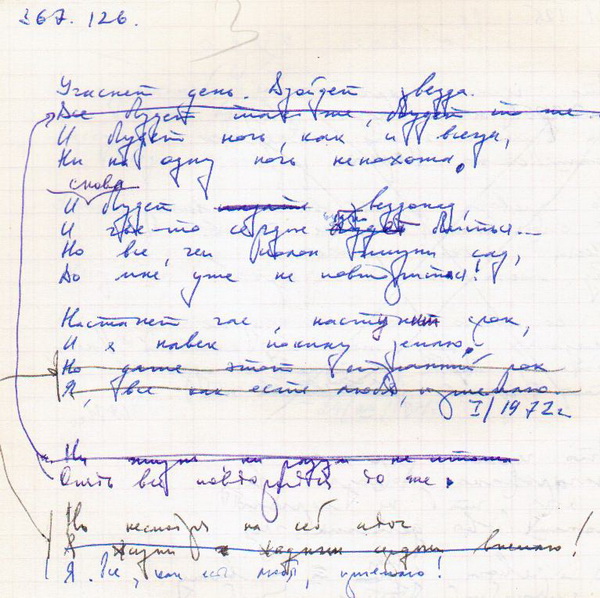 367. 126.
Угаснет день. Взойдет звезда.
Все будет так же, будет то же
И будет ночь, как и всегда,
Ни на одну ночь непохожа.
снова
И будет звездопад,
И где-то сердце будет биться...
Но все, чем полон жизни сад,
Во мне уже не повторится!
Настанет час, наступит срок,
И я навек покину землю.
Но даже этот рок
Я, все как есть любя, приемлю.
I/1972г
Ни жизни ни
Опять всё повторится то же.
Но несмотря на итог
Я жизни сердцем внемлю!
Я все, как есть любя, приемлю!